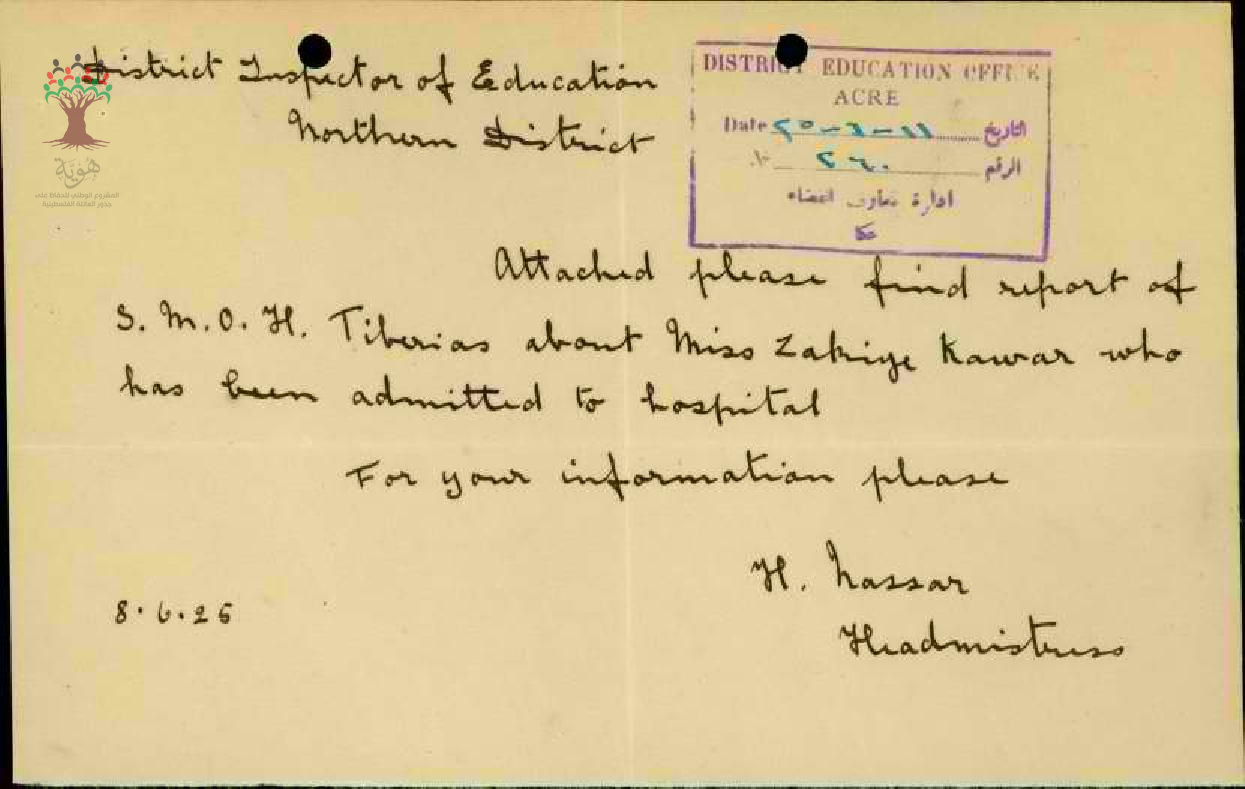 District Inspector of Education
Northern District
DISTRICT EDUCATION OFFICE
ACRE
Date ٢٥-٦-١١ التاريخ
٢٦٠ الرقم
ادارة معارف القضاء
عكا
هوية
المشروع الوطني للحفاظ على
جذور العائلة الفلسطينية
Attached please find report of
S. M. O. H. Tiberias about Miss Zakiye Kawar who
has been admitted to hospital
For your information please
H. Nassar
Headmistress
8.6.25